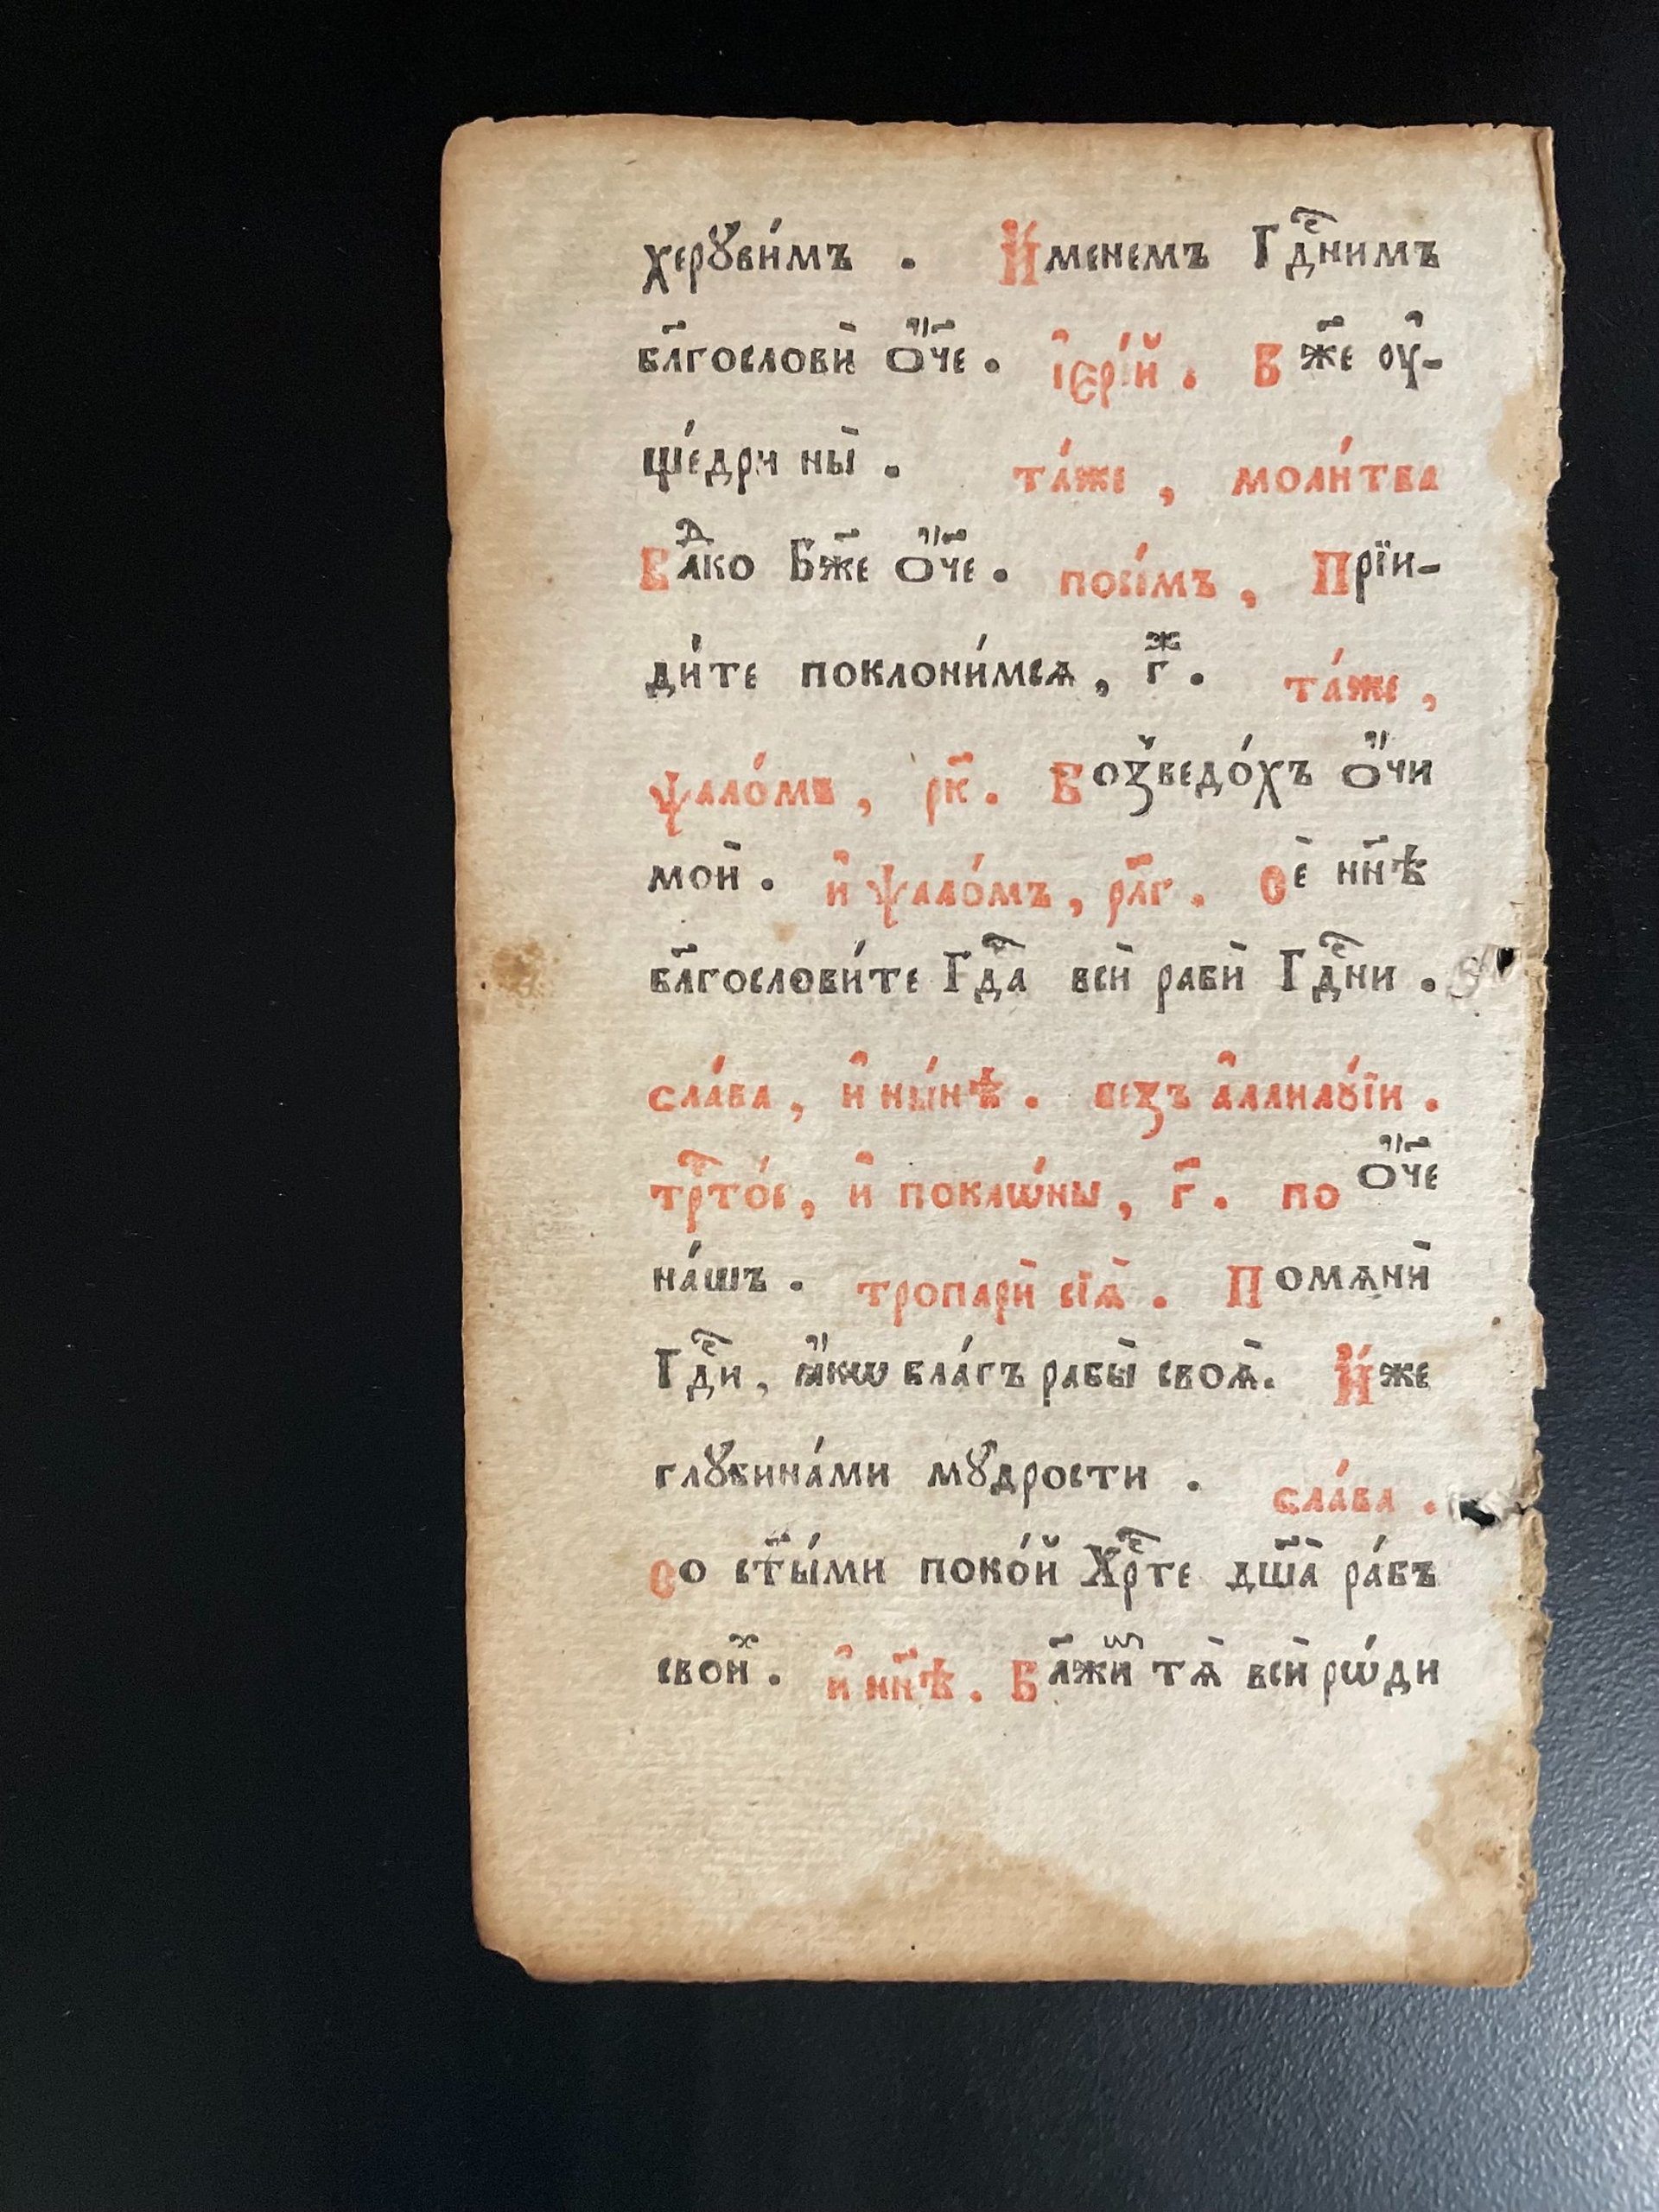 херꙋви́мъ . И҆́менемъ Гдⷭ҇нимъ
бл҃гословѝ ѻ҆́ч҃е . і҆ере́й . Бж҃е ᲂу҆-
ще́дри ны̀ . та́же , моли́тва
Влⷣко Бж҃е ѻ҆́ч҃е . пои́мъ , Прїи-
ди́те поклони́мсѧ , г҃ⷤ . та́же ,
ѱало́мъ , рк҃ . Возведо́хъ ѻ҆́чи
моѝ . и҆ ѱало́мъ , рл҃г . Сѐ нн҃ѣ
бл҃гослови́те Гдⷭ҇а всѝ рабѝ Гдⷭ҇ни .
сла́ва , и҆ ны́нѣ . безъ а҆ллилꙋ́їи .
трⷭ҇то́е , и҆ покло́ны , г҃ . по ѻ҆́ч҃е
на́шъ . тропарѝ сїѧ̀ . Помѧнѝ
Гдⷭ҇и , ꙗ҆́кѡ бла́гъ рабы̀ своѧ̀ . И҆́же
глꙋбина́ми мꙋ́дрости . сла́ва .
Со ст҃ы́ми поко́й Хрⷭ҇те дш҃а̀ ра́бъ
свои́ⷯ . и҆ нн҃ѣ . Бл҃жи́ⷨ тѧ̀ всѝ рѡ́ди